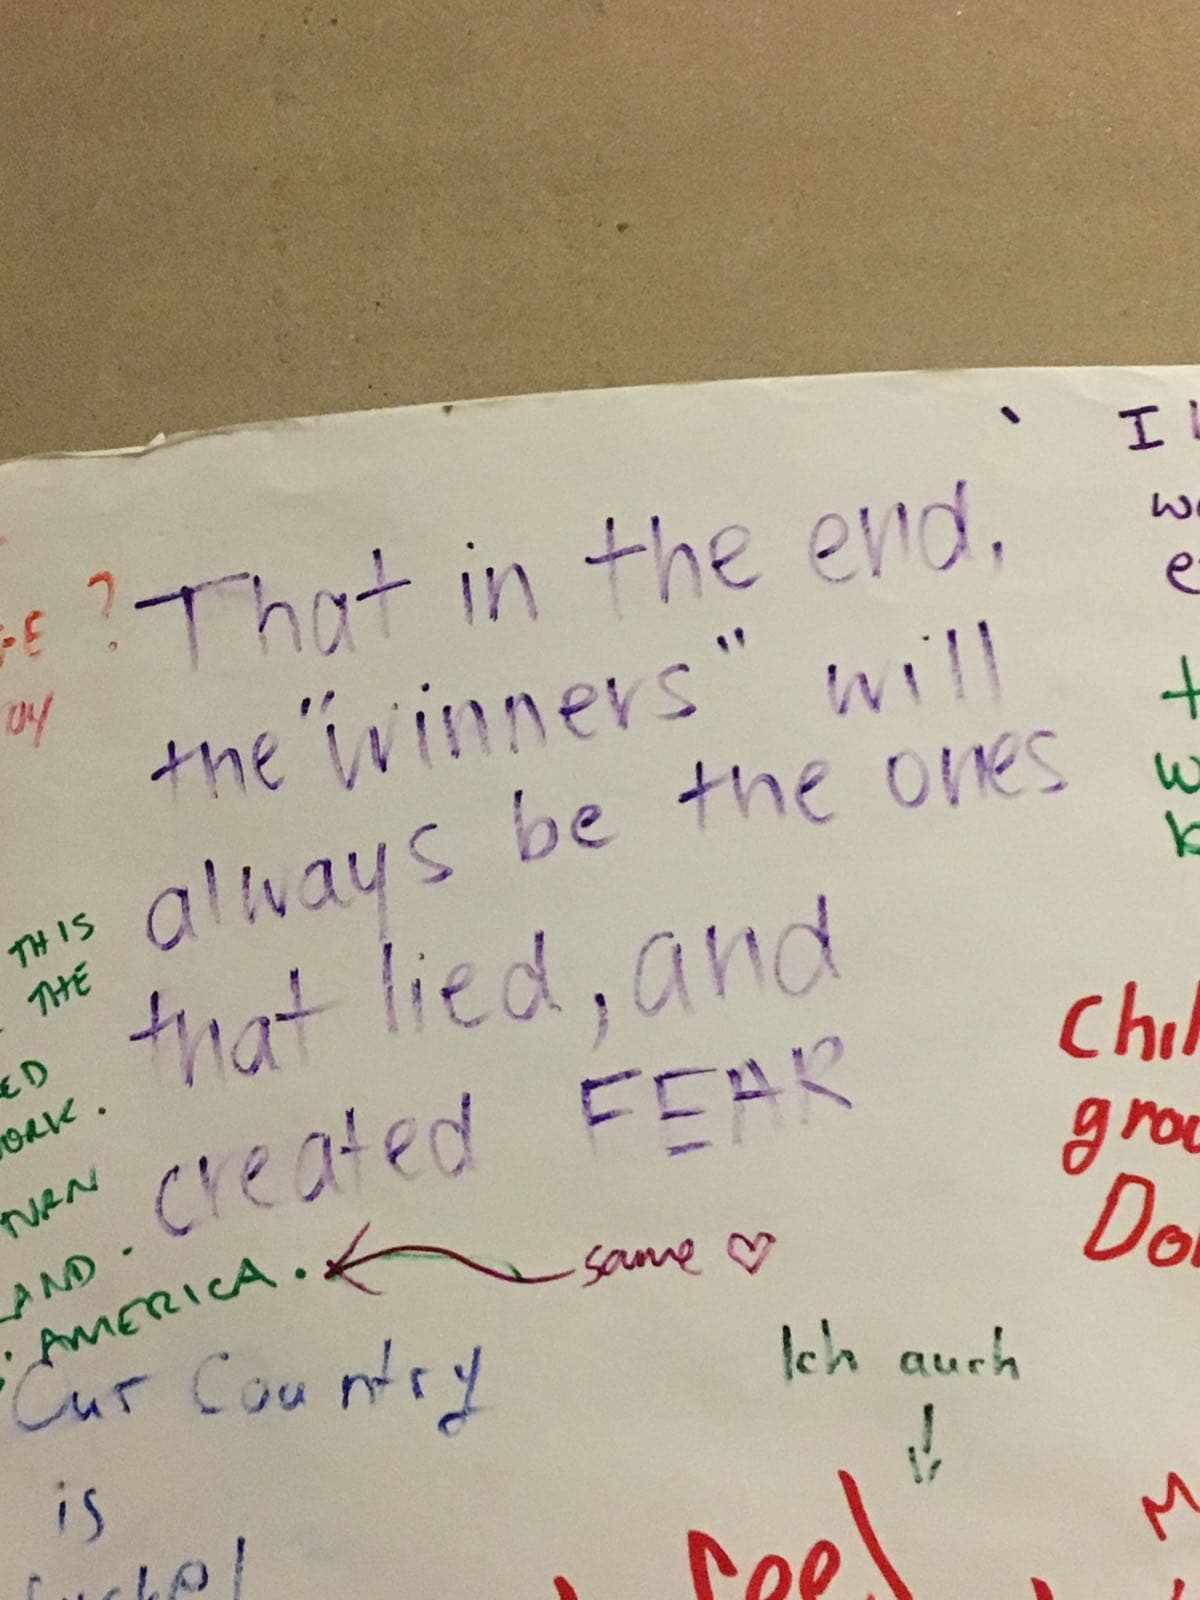 That in the end,
the "winners" will
always be the ones
that lied, and
created FEAR
?
THIS
THE
TURN
AMERICA.
same ♡
Our Country
is
Ich auch
feel
I